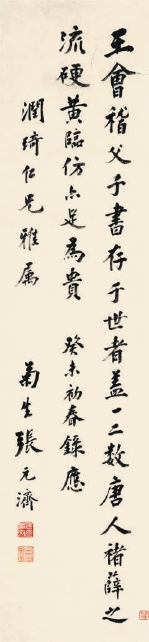 王會稽父子書存于世者蓋一二數唐人褚薛之
流硬黃臨仿亦足為貴 癸未初春錄應
潤綺仁兄雅屬
菊生張元濟